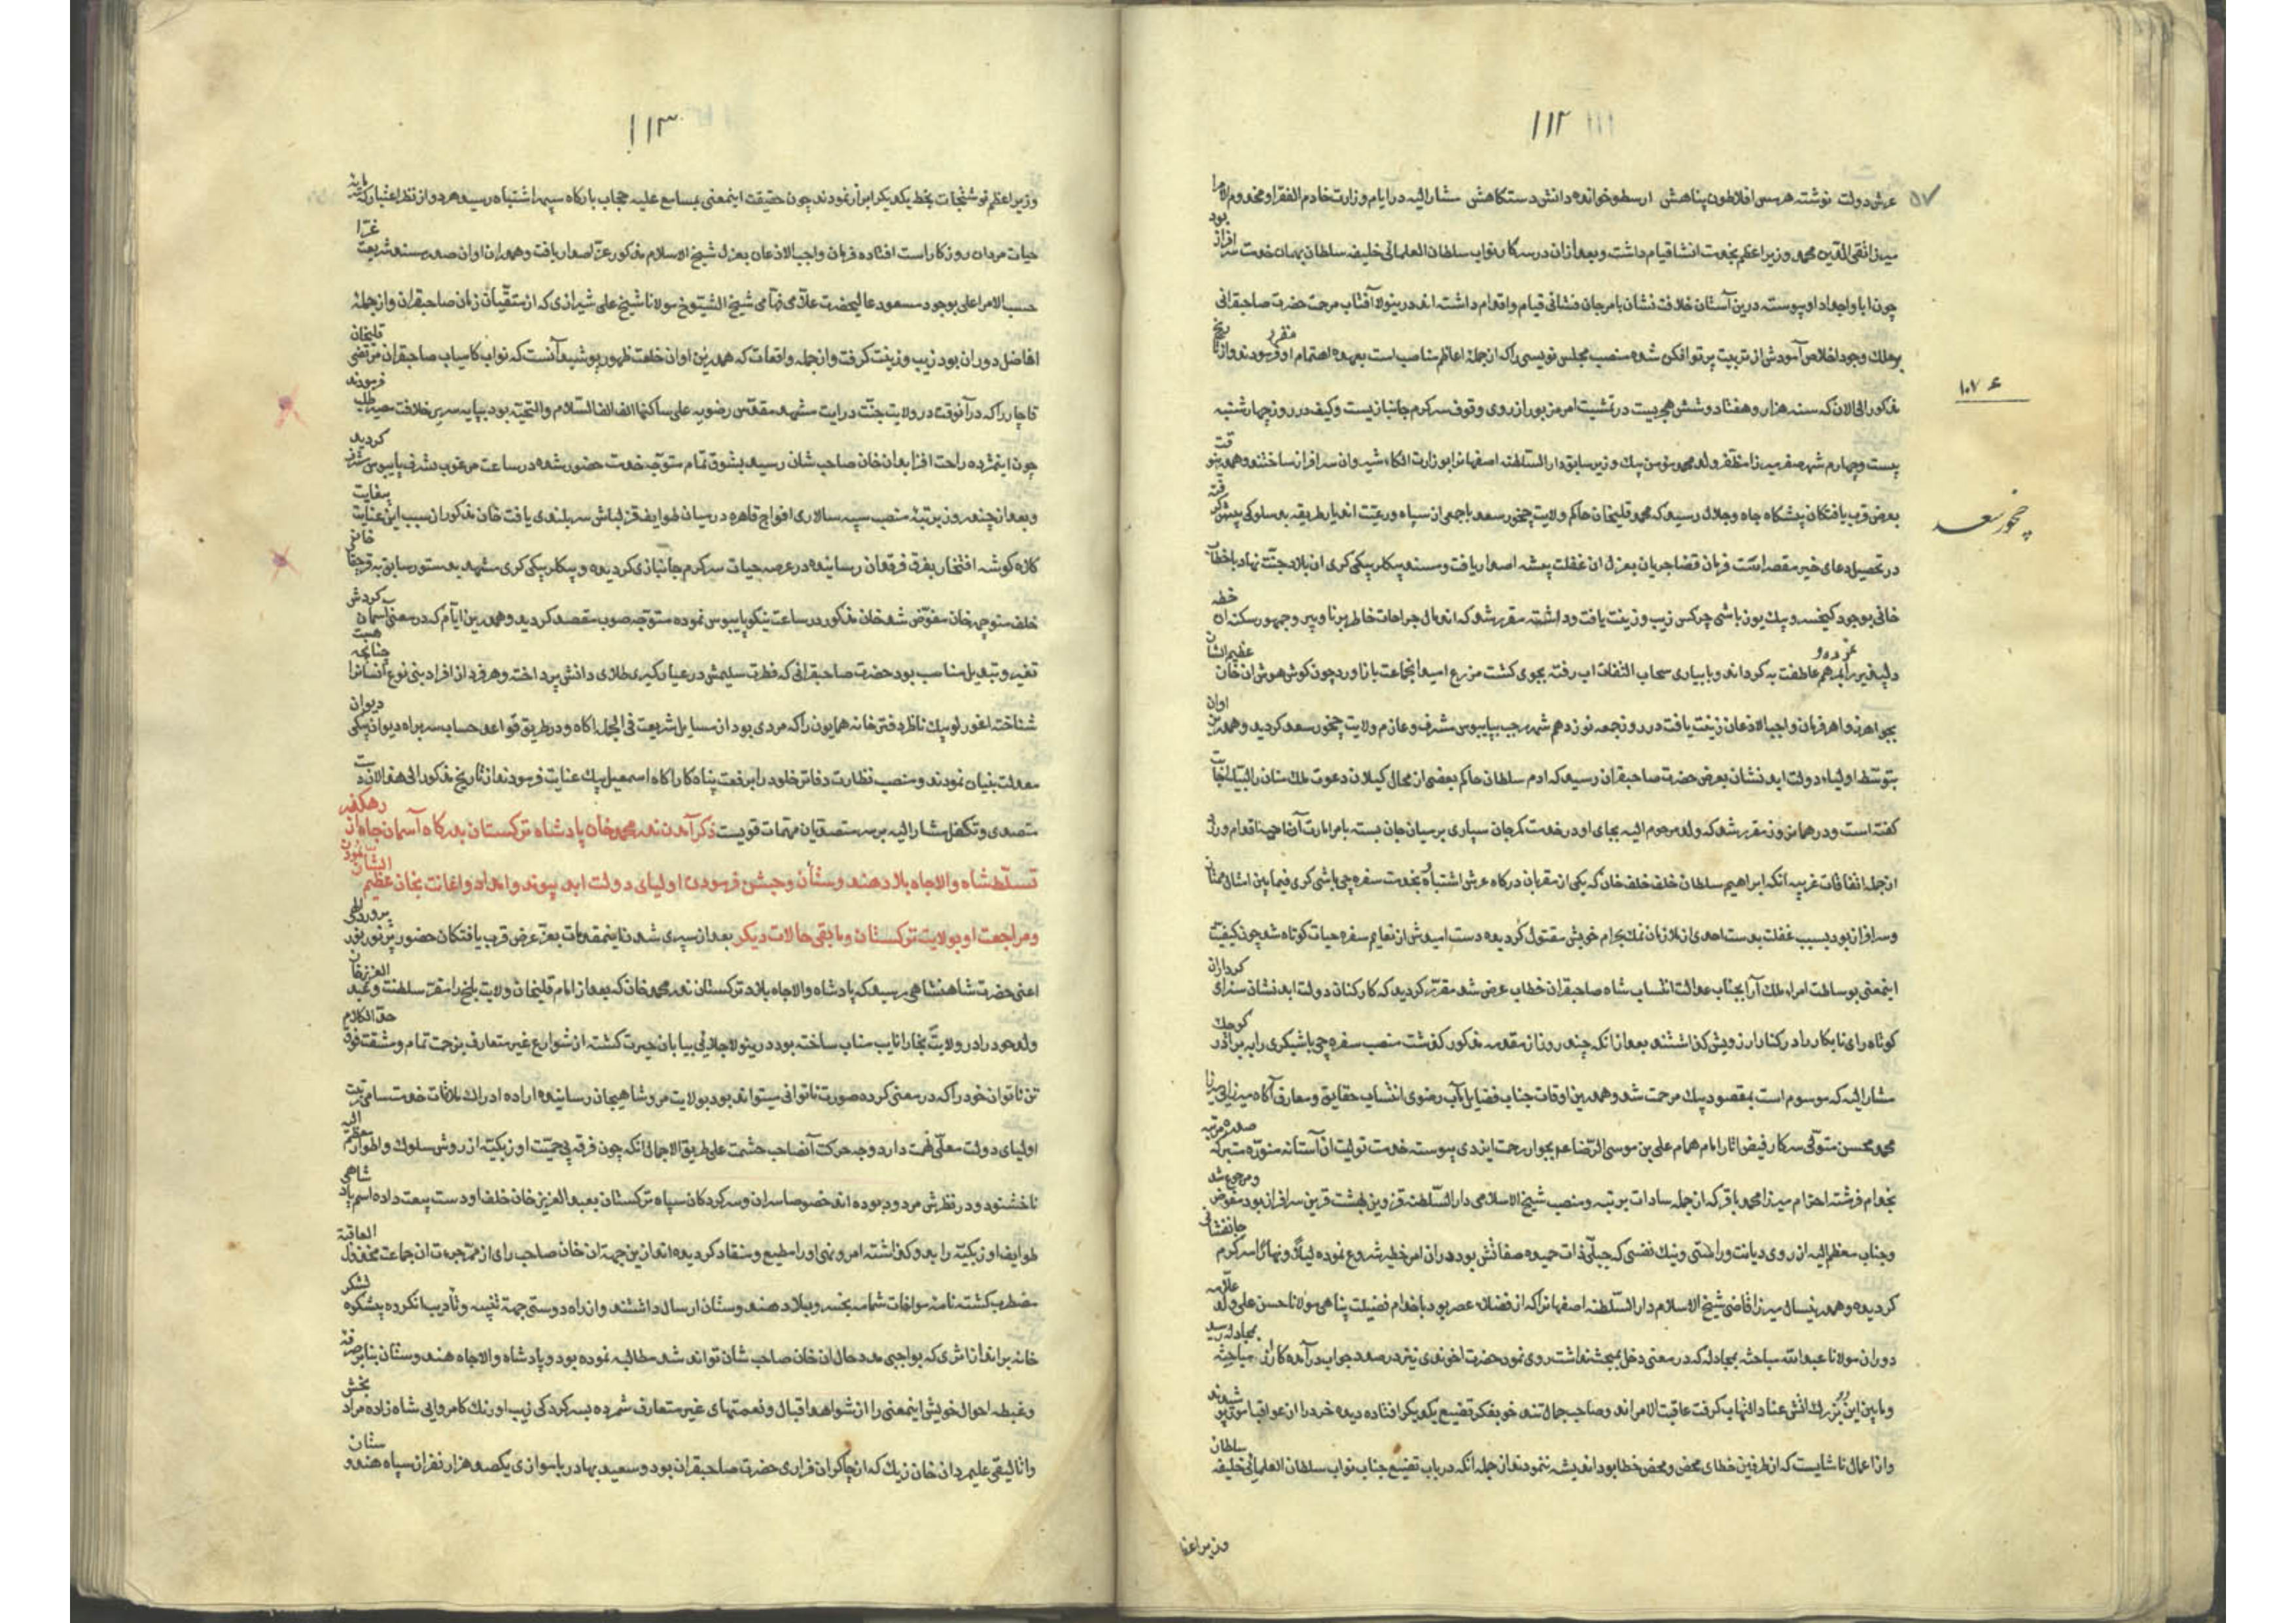 ۱۱۱ ۱۱۲
عرش دولت نوشته هرمس افلاطون پناهش ارسطو خوانده دانش دستگاهش مشارالیه در ایام وزارت خادم الفقرا و مخدوم الامرا
میرزا تقی الدین محمد وزیر اعظم بخدمت انشا قیام داشت و بعد از ان در سرکار نواب سلطان العلمائی خلیفه سلطان بهمان خدمت سرافراز بود
چون ابا و اجداد او پیوسته درین آستان خلافت نشان بامر جان فشانی قیام و اقدام داشته اند درینولا آفتاب مرحمت حضرت صاحبقرانی
بر ملک وجود اخلاص آمودش از تربیت پرتو افکن شده منصب مجلس نویسی را که از جمله اعاظم مناصب است بعهده اهتمام او مقرر فرمودند و از تاریخ
مذکور الی الان که سنه هزار و هفتاد و شش هجریست در تمشیت امر مزبور از روی وقوف سرگرم جانبازیست و کیف در روز چهارشنبه
۱۰۷۶
بیست و چهارم شهر صفر میرزا مظفر ولد محمد مؤمن بیک وزیر سابق دار السلطنه اصفهانرا بوزارت الکاء شیروان سرافراز ساختند و همدرینوقت
بعرض قرب یافتگان پیشگاه جاه و جلال رسید که محمد قلیخان حاکم ولایت چخور سعد با جمعی از سپاه و رعیت اندیار طریقه بد سلوکی پیش گرفته
چخور سعد
در تحصیل دعای خیر مقصر است فرمان قضا جریان بعزل ان غفلت پیشه اصدار یافت و مسند بیکلر بیکی کری ان بلاد جنت نهاد با خطاب
خانی بوجود کیخسرو بیک یوزباشی چرکس زیب و زینت یافت و داشته مقرر شد که اندمال جراحات خاطر برنا و پیر و جمهور سکنه ان خطه
دلپذیر را بمرهم عاطفت به گرداند و بابیاری سحاب التفات اب رفته بجوی کشت مزرع امید انجماعت باز اورد چون گوش هوش ان خان عظیم الشان
بجواهر زواهر فرمان واجب الاذعان زینت یافت در روز جمعه نوزدهم شهر رجب بپایبوس مشرف و عازم ولایت چخور سعد کردید و همدرین اوان
بتوسط اولیاء دولت ابد نشان بعرض حضرت صاحبقران رسید که ادم سلطان حاکم بعضی از محال کیلان دعوت ملک منان را لبیک اجابت
گفته است و در همان روز مقرر شد که ولد مرحوم الیه بجای او در خدمت کمر جان سپاری بر میان جان بسته بامر امارت آنناحیه اقدام ورزد
از جمله اتفاقات غریبه انکه ابراهیم سلطان خلف خلف خان که یکی از مقربان درگاه عرش اشتباه و بخدمت سفره چی باشی کری فیمابین امثال ممتاز
و سرافراز بود بسبب غفلت بدست احدی از ملازمان نمک بحرام خویش مقتول کردیده دست امیدش از نعایم سفره حیات کوتاه شد چون کیفیت
اینمعنی بوساطت امراء ملک آرا بجناب عدالت انتساب شاه صاحبقران خطاب عرض شد مقرر کردید که کارکنان دولت ابد نشان سزای کرداران
کوتاه رای نابکار را در کنار ارزویش گذاشتند بعد از انکه چند روز از مقدمه مذکور گذشت منصب سفره چی باشیگری را به برادر کوچک
مشارالیه که موسوم است بمقصود بیک مرحمت شد و همدرین اوقات جناب فضایل مآب رضوی انتساب حقایق و معارف آگاه میرزا
محمد محسن متولی سرکار فیض اثار امام همام علی بن موسی الرضا ع بجوار رحمت ایزدی پیوسته خدمت تولیت ان آستانه منوره متبرکه
بخدام فرشته احترام میرزا محمد باقر که از جمله سادات مرتبه و منصب شیخ الاسلامی دار السلطنه قزوین بهشت قرین سرافراز بود مفوض و مرجوع شد
و جناب معظم الیه از روی دیانت و راستی و نیک نفسی که جبلی ذات حمیده صفاتش بود در ان امر خطیر شروع نموده لیلا و نهارا سرگرم جانفشانی
کردیده و همدرینسال میرزا قاضی شیخ الاسلام دار السلطنه اصفهانرا که از فضلاء عصر بود با خدام فضیلت پناهی مولانا حسن علی ولد علامه
دوران مولانا عبدالله مباحثه بمجادله که در معنی دخل بمبحث نداشت روی نمود حضرت اخوندی نیز در صدد جواب در آمده کار از مباحثه بمجادله رسید
و مابین این دو بزرگ آتش عناد التهاب گرفت عاقبت الامر اند و صاحب جمال تند خو بفکر تضییع یکدیگر افتاده دیده خرد را از عواقب امور پوشیدند
و از اعمال ناشایست که از طرفین خطای محض و محض خطا بود اندیشه ننمودند از جمله انکه در باب تضییع جناب نواب سلطان العلمائی خلیفه سلطان
وزیر اعظم
۱۱۳
وزیر اعظم نوشتجات بخط یکدیگر ابراز نمودند چون حقیقت اینمعنی بمسامع علیه حجاب بارگاه سپهر اشتباه رسید هر دو از نظر اعتبار که مایه
حیات مردان روزگار است افتاده فرمان واجب الاذعان بعزل شیخ الاسلام مذکور عز اصدار یافت و همدران اوان صدر مسند شریعت غرا
حسب الامر اعلی بوجود مسعود عالیحضرت علامی فهامی شیخ الشیوخ مولانا شیخ علی شیرازی که از متقیان زمان صاحبقران و از جمله
افاضل دوران بود زیب و زینت گرفت و از جمله واقعات که همدرین اوان خلعت ظهور پوشید آنست که نواب کامیاب صاحبقران مرتضی قلیخان
قاجار را که در آنوقت در ولایت جنت درایت مشهد مقدس رضویه علی ساکنها الف الف السلام والتحیه بود بپایه سریر خلافت مصیر طلب فرمودند
چون اینمژده راحت افزا بدان خان صاحب شان رسید بشوق تمام متوجه خدمت حضور شده در ساعت مرغوب بشرف پایبوس مشرف کردید
و بعد از چند روز بر تبه منصب سپه سالاری افواج قاهره در میان طوایف قزلباش سربلندی یافت خان مذکور از سبب این عنایت بیغایت
کلاه گوشه افتخار بفرق فرقدان رسانیده در عرصه حیات سرگرم جانبازی کردیده و بیکلر بیکی کری مشهد بدستور سابق به قرجغای خانی
خلف منوچهر خان مفوض شد خان مذکور در ساعت نیکو پایبوس نموده متوجه صوب مقصد کردید و همدرین ایام که در معنی آسمان گردش
تغیر و تبدیل مناصب بود حضرت صاحبقرانی که فطرت سلیمش در عیارگیری طلای دانش پرداخته و هر فرد از افراد بنی نوع انسانرا چنانچه
شناخت اغورلو بیک ناظر دفتر خانه همایون را که مردی بود از مسایل شریعت فی الجمله آگاه و در طریق قواعد حساب سربراه دیوان بیکی دیوان
معدلت بنیان نمودند و منصب نظارت دفاتر خلود را برفعت پناه کار اگاه اسمعیل بیک عنایت فرمودند از تاریخ مذکور الی هذا الان
متصدی و تکفل مشارالیه بر سر متصدیان مهمات قویست ذکر آمدن ندر محمد خان پادشاه ترکستان بدرگاه آسمان جاه از رهگذر
تسلط شاه والاجاه بلاد هندوستان و جشن فرمودن اولیای دولت ابد پیوند و امداد و اعانت بخان عظیم الشان نمودن
و مراجعت او بولایت ترکستان و مابقی حالات دیگر بعد از سپری شدن اینمقدمات بعز عرض قرب یافتگان حضور پر نور
اعنی حضرت شاهنشاهی رسید که پادشاه والاجاه بلاد ترکستان ندر محمد خان که بعد از امام قلیخان ولایت بلخ را مقر سلطنت و عبد العزیز خان
ولد خود را در ولایت بخارا نایب مناب ساخته بود درینولا جلای بیابان حیرت گشته از شوارع غیر متعارف بزحمت تمام و مشقت فوق حد الکلام
تن ناتوان خود را که در معنی گرده صورت ناتوانی میتواند بود بولایت مرو شاهیجان رسانیده اراده ادراک ملاقات خدمت سامی رتبت
اولیای دولت معلی همت دارد وجه حرکت آنصاحب حشمت علی طریق الاجمال انکه چون فرقه بی حمیت اوزبکیه از روش سلوک و اطوار معظم الیه
ناخشنود و در نظرش مردود بوده اند خصوصا سران و سرکردگان سپاه ترکستان بعبد العزیز خان خلف او دست بیعت داده اسم پادشاهی
طوایف اوزبکیه را بدو گذاشته امر و نهی او را مطیع و منقاد کردیده اند ازین جهة ان خان صاحب رای از ممر جرءت ان جماعت مخذول العاقبة
مضطرب گشته نامه موافات شمامه بخسرو بلاد هندوستان ارسال داشتند و از راه دوستی جهة تنبیه و تادیب انگروه بیشکوه لشکر
خانه براندازش که بواجبی مدد حال ان خان صاحب شان تواند شد مطالبه نموده بود و پادشاه والاجاه هندوستان بنابر
و غبطه احوال خویش اینمعنی را از شواهد اقبال و نعمتهای غیر متعارف شمرده بسرکردگی زیب اورنک کامروایی شاه زاده مراد بخش
و اتالیقی علیمردان خان زیک که از چاکران فراری حضرت صاحبقران بود و سعید بهادر با موازی یکصد هزار نفر از سپاه هندوستان